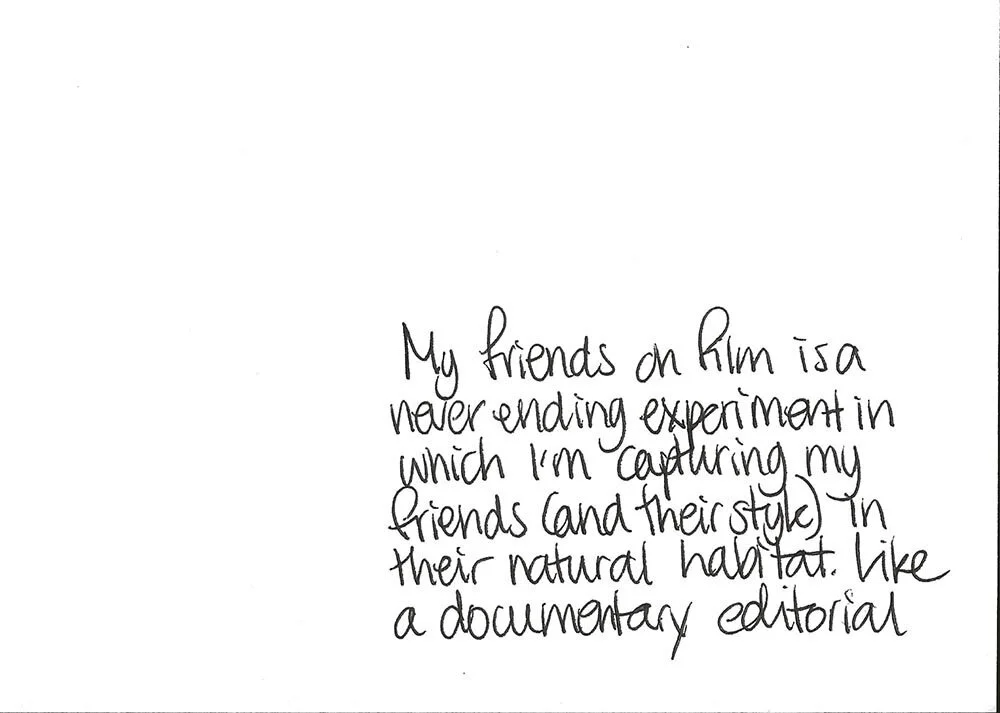 My friends on film is a
never ending experiment in
which I'm capturing my
friends (and their style) in
their natural habitat. Like
a documentary editorial